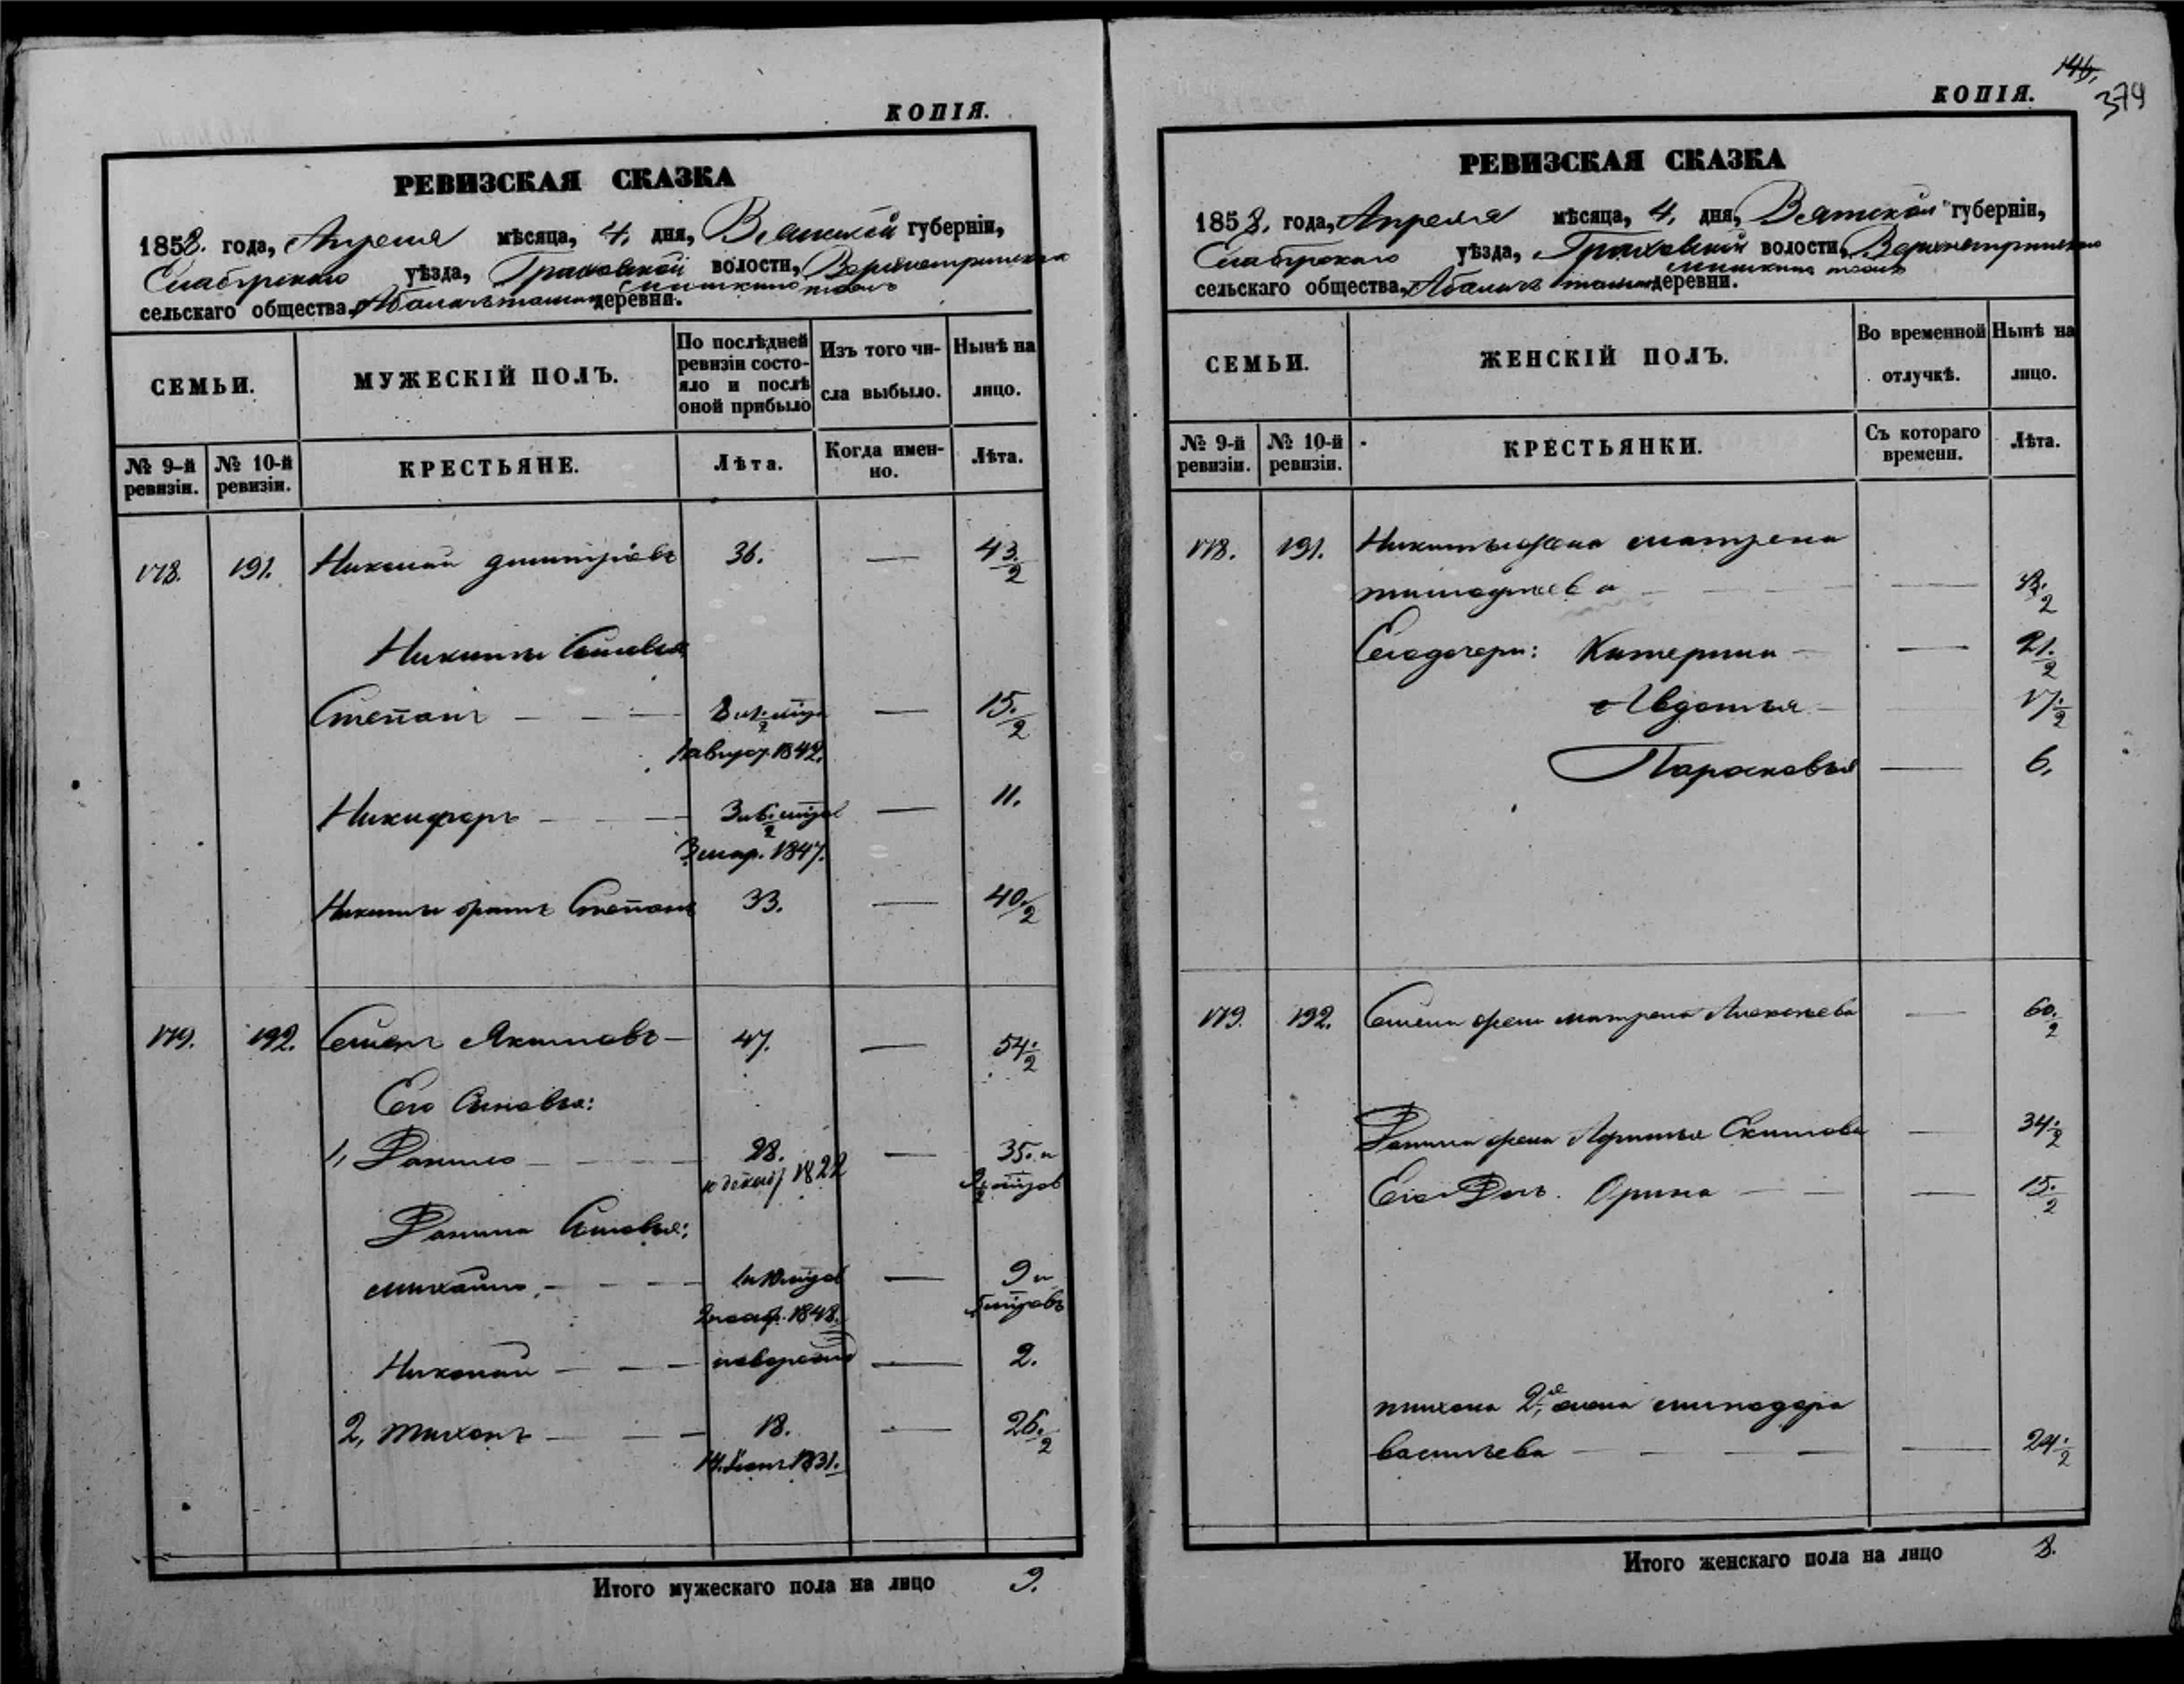 КОПІЯ.
РЕВИЗСКАЯ СКАЗКА
1858. года, Апреля мѣсяца, 4. дня, Вятской губерніи,
уѣзда, Граховской волости,
сельскаго общества, деревни.
СЕМЬИ.
МУЖЕСКІЙ ПОЛЪ.
По послѣдней ревизіи состояло и послѣ оной прибыло
Изъ того числа выбыло.
Нынѣ на лицо.
№ 9-й ревизіи.
№ 10-й ревизіи.
КРЕСТЬЯНЕ.
Лѣта.
Когда именно.
Лѣта.
178. 191. Николай Дмитріевъ 36. — 43./2
Никиты Сыновья
Степанъ — — — 15./2
1 август. 1842.
Никифоръ — — — 11.
3 мар. 1847.
Никиты братъ Степанъ 33. — 40./2
179. 192. Семенъ Якимовъ — 47. — 54./2
Его Сыновья:
1, Данило — — 28. — 35. и
10 декаб 1822
Данила Сыновья:
Михайло — — — 9 и
2 1848. 5 мцовъ
Николай — — — — 2.
2, Тихонъ — — — 18. — 26./2
14. 1831.
Итого мужескаго пола на лицо 9.
146,
379
КОПІЯ.
РЕВИЗСКАЯ СКАЗКА
1858. года, Апреля мѣсяца, 4. дня, Вятской губерніи,
уѣзда, Граховской волости,
сельскаго общества, деревни.
СЕМЬИ.
ЖЕНСКІЙ ПОЛЪ.
Во временной отлучкѣ.
Нынѣ на лицо.
№ 9-й ревизіи.
№ 10-й ревизіи.
КРЕСТЬЯНКИ.
Съ котораго времени.
Лѣта.
178. 191. Никиты жена Матрена
Тимофеева — —
Его дочери: Катерина — — 21./2
Авдотья — 17./2
Парасковья — 6.
179. 192. Семена жена Матрена Алексеева — 60./2
Данила жена Якимова — 34./2
Его Доч. Орина — — — 15./2
Тихона 2я жена
Васильева — — — — — 24./2
Итого женскаго пола на лицо 8.